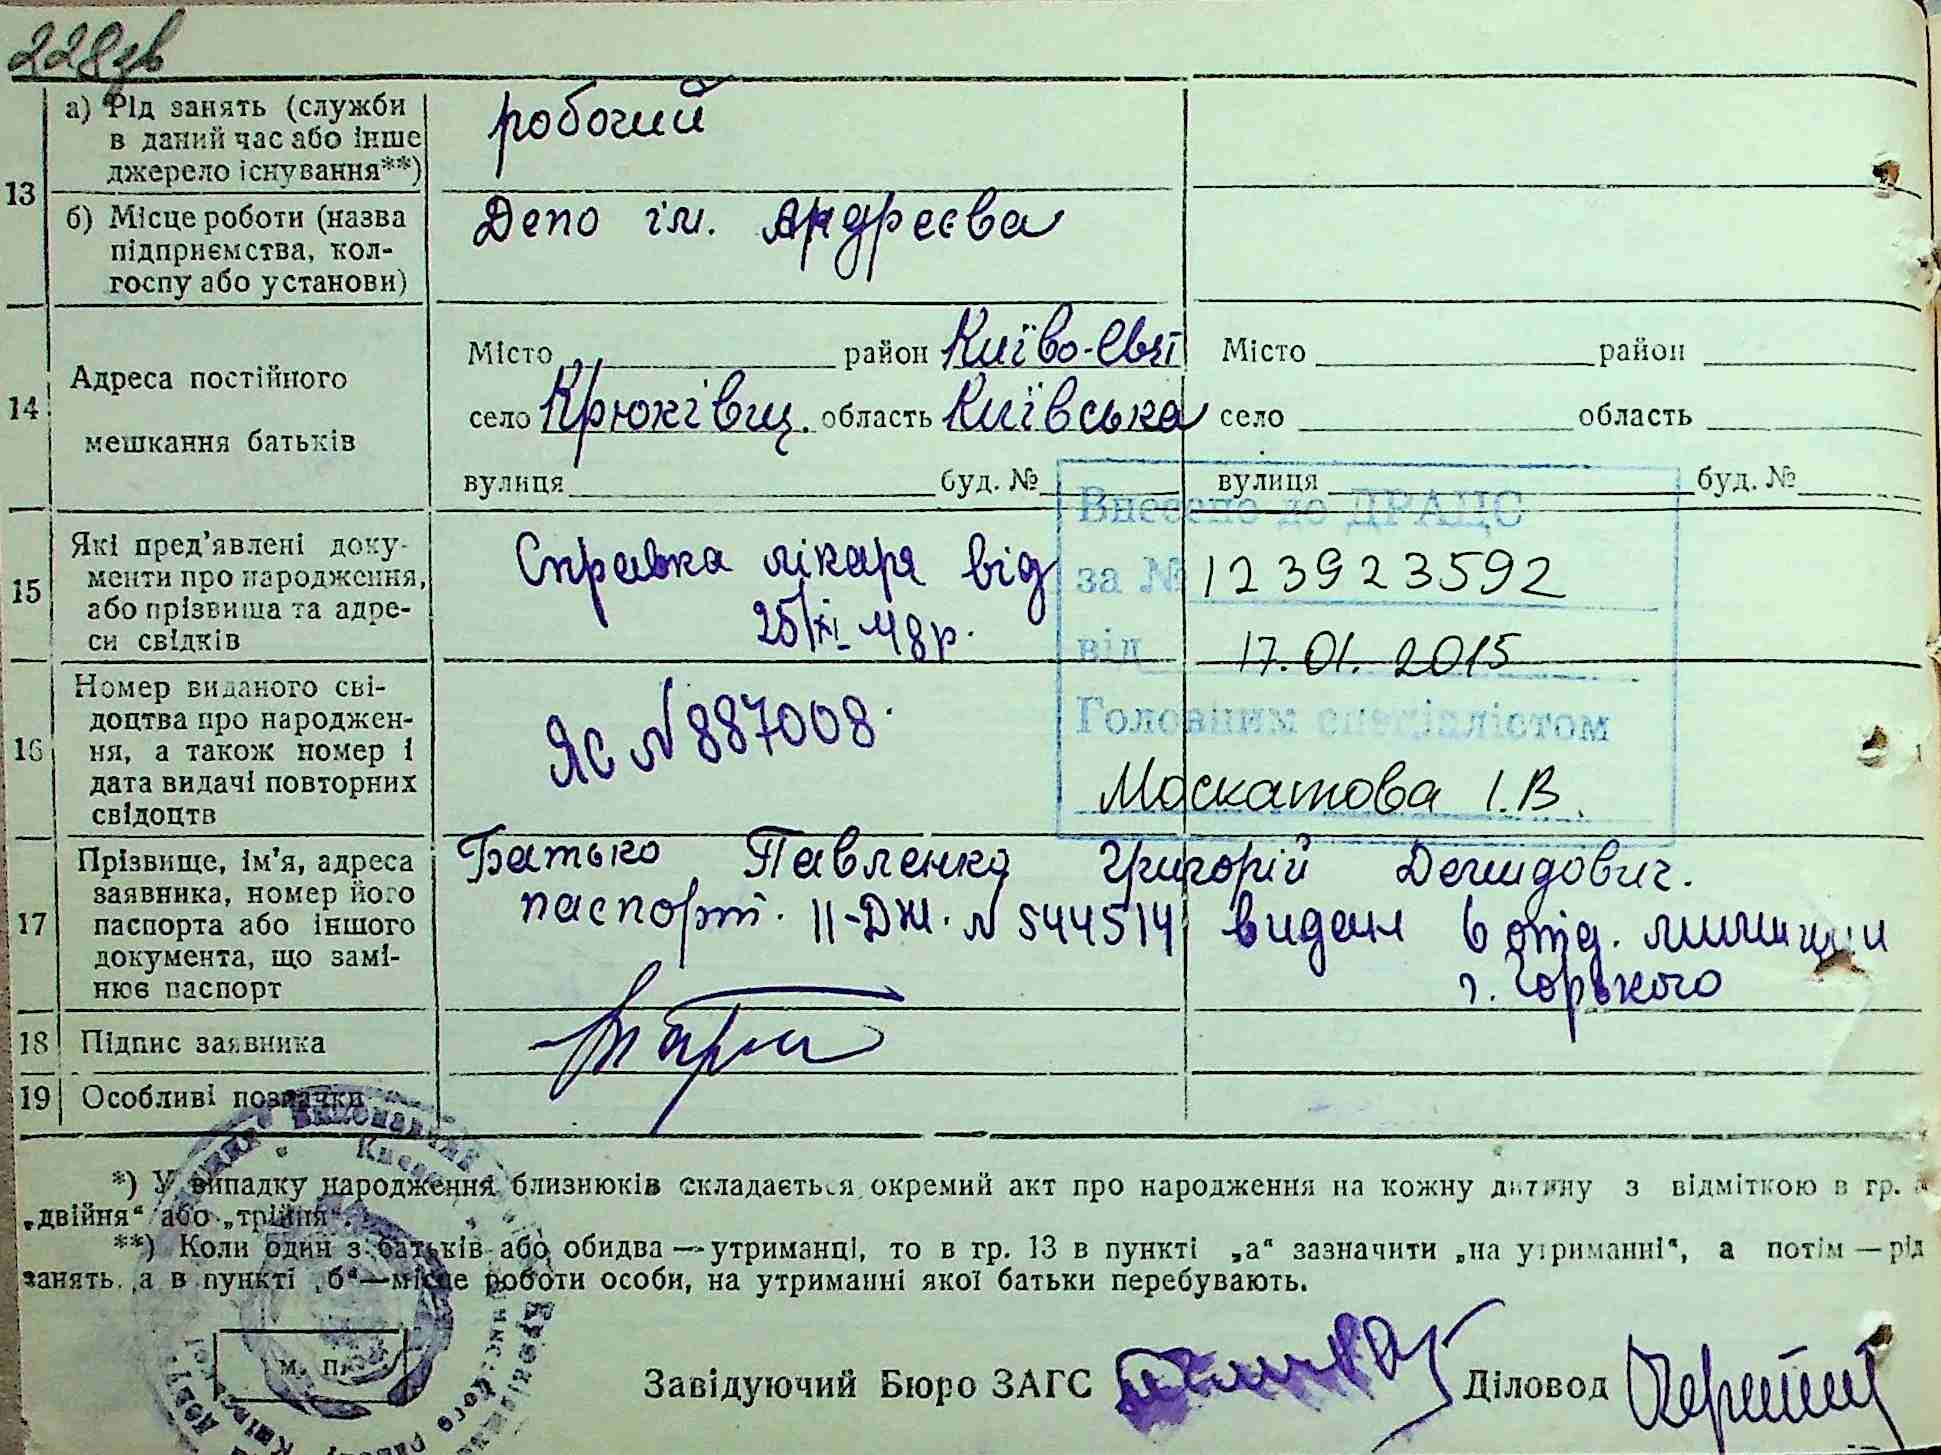 228зв
13
а) Рід занять (служби
в даний час або інше
джерело існування**)
робочий
б) Місце роботи (назва
підприємства, кол-
госпу або установи)
Депо ім. Андреєва
14
Адреса постійного
мешкання батьків
Місто район Києво-Свят
село Крюківщ. область Київська
вулиця буд. №
Місто район
село область
вулиця буд. №
15
Які пред'явлені доку-
менти про народження,
або прізвища та адре-
си свідків
Справка лікаря від
25/XI 48 р.
Внесено до ДРАЦС
за № 123923592
від 17.01.2015
Головним спеціалістом
Москатова І.В.
16
Номер виданого сві-
доцтва про народжен-
ня, а також номер і
дата видачі повторних
свідоцтв
ЯС N 887008.
17
Прізвище, ім'я, адреса
заявника, номер його
паспорта або іншого
документа, що замі-
нює паспорт
Батько Павленко Григорій Демидович.
паспорт. II-ДЖ. N 544514 видан 6 отд. милиции
г. Горького
18 Підпис заявника
19 Особливі позначки
*) У випадку народження близнюків складається окремий акт про народження на кожну дитину з відміткою в гр.
„двійня“ або „трійня“.
**) Коли один з батьків або обидва — утриманці, то в гр. 13 в пункті „а“ зазначити „на утриманні“, а потім — рід
занять, а в пункті „б“ — місце роботи особи, на утриманні якої батьки перебувають.
М. П.
Завідуючий Бюро ЗАГС
Діловод